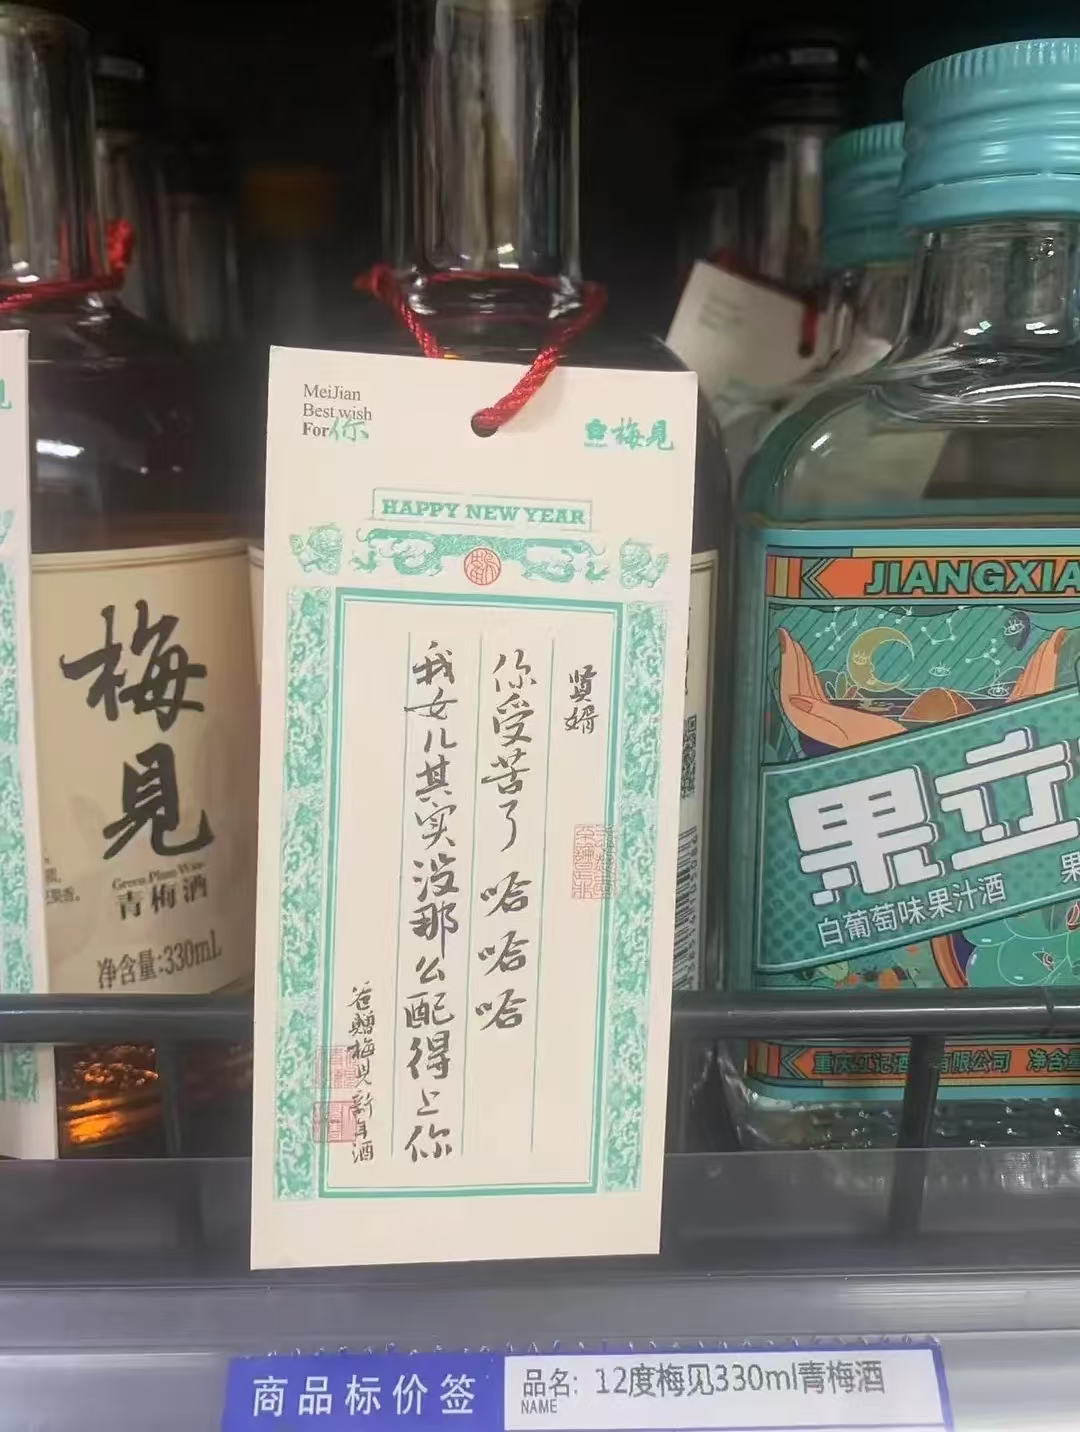 MeiJian
Best wish
For你
梅見
HAPPY NEW YEAR
贤婿
你受苦了哈哈哈
我女儿其实没那么配得上你
爸赠梅见新年酒
梅見
Green Plum Wine
青梅酒
净含量:330mL
果香。
JIANGXIA
果立
白葡萄味果汁酒
果
重庆江记酒 有限公司 净含量
商品标价签
品名: 12度梅见330ml青梅酒
NAME